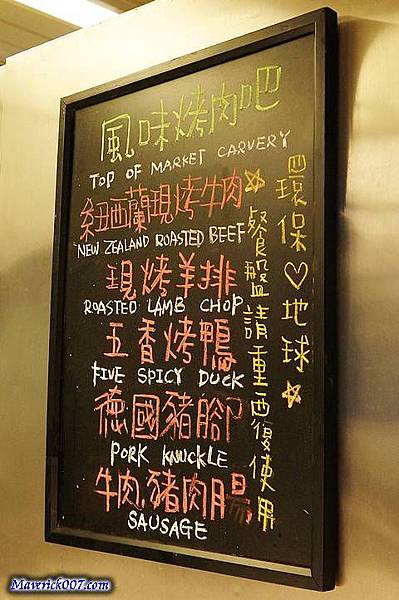 風味烤肉吧
TOP OF MARKET CARVERY
紐西蘭現烤牛肉
NEW ZEALAND ROASTED BEEF
現烤羊排
ROASTED LAMB CHOP
五香烤鴨
FIVE SPICY DUCK
德國豬腳
PORK KNUCKLE
牛肉.豬肉腸
SAUSAGE
環保♡地球☆
☆餐盤請重西復使用
Mawrick007.com